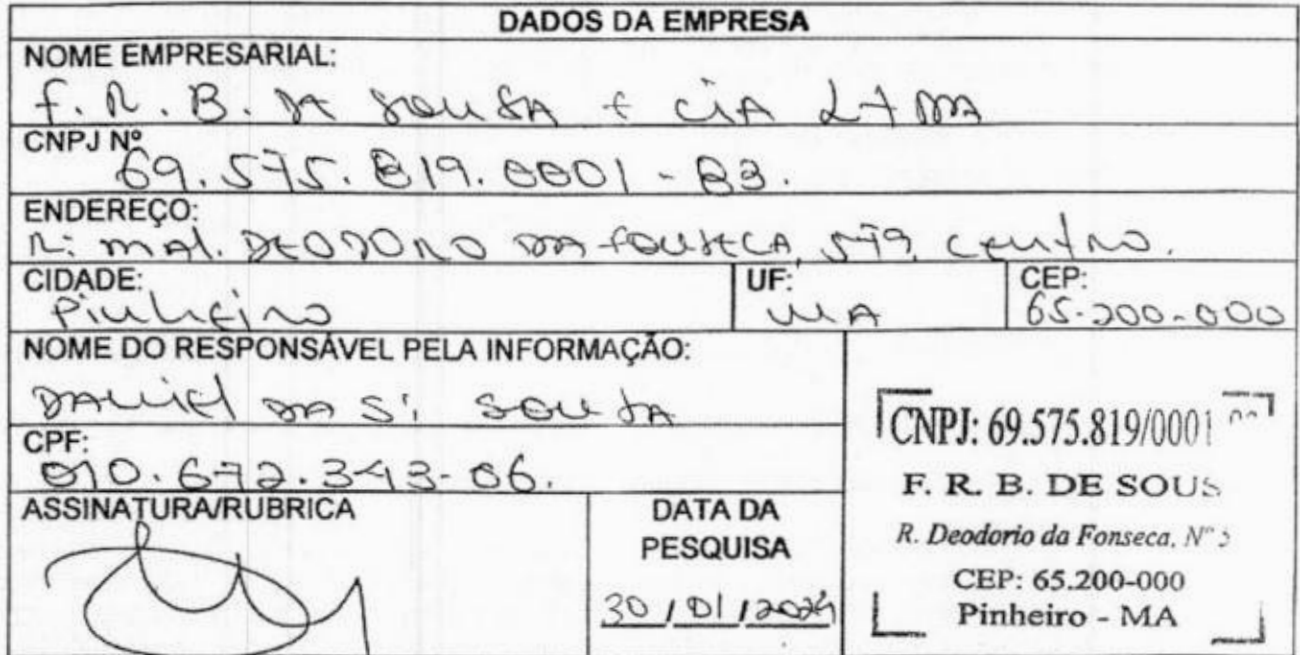 DADOS DA EMPRESA
NOME EMPRESARIAL:
F. R. B. DA SOUSA + CIA LTDA
CNPJ Nº
69.575.819.0001-83.
ENDEREÇO:
R: MAL. DEODORO DA FONSECA, 579, CENTRO.
CIDADE:
Pinheiro
UF:
MA
CEP:
65.200-000
NOME DO RESPONSÁVEL PELA INFORMAÇÃO:
DANIEL DA S. SOUSA
CPF:
010.672.343-06.
ASSINATURA/RUBRICA
DATA DA
PESQUISA
30/01/2024
CNPJ: 69.575.819/0001
F. R. B. DE SOUS
R. Deodorio da Fonseca, Nº 5
CEP: 65.200-000
Pinheiro - MA